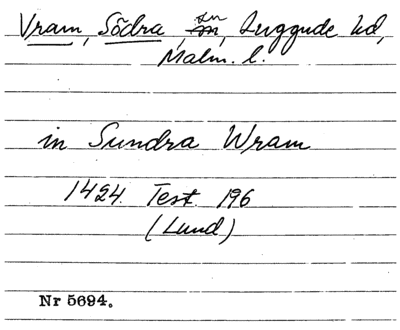 Vram, Södra, sn, Luggude hd,
Malm. l.
in Sundra Wram
1424. Test. 196
(Lund)
Nr 5694.